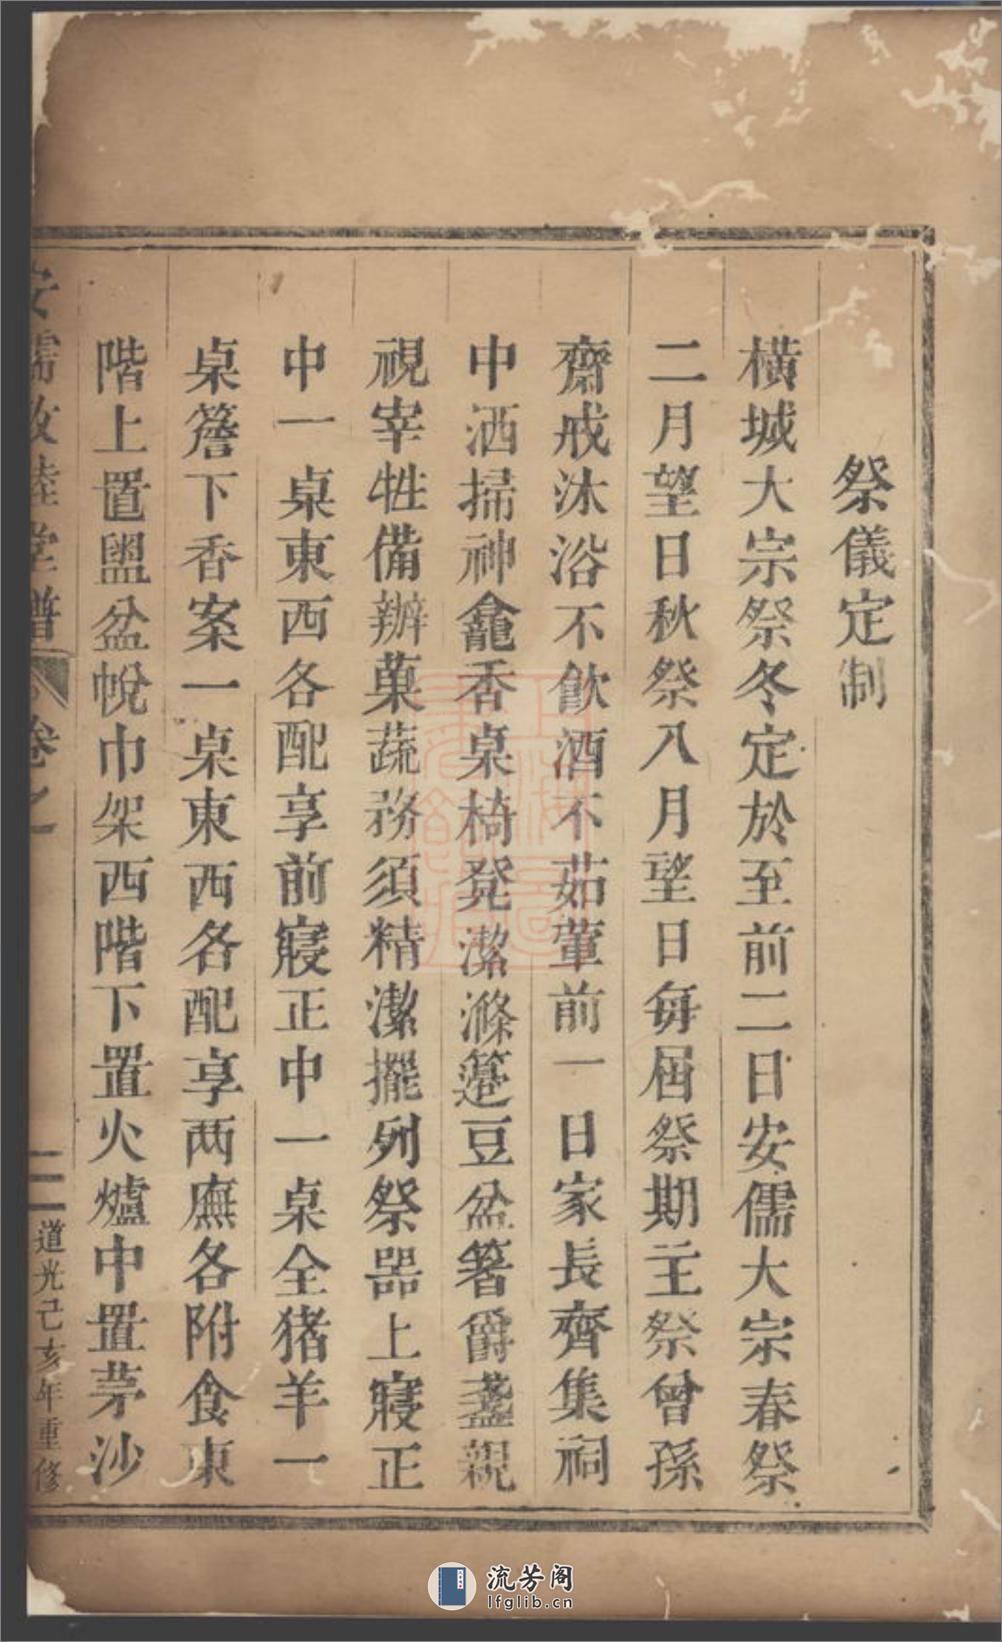 祭儀定制
橫城大宗祭冬定於至前二日安儒大宗春祭
二月望日秋祭八月望日每屆祭期主祭曾孫
齋戒沐浴不飲酒不茹葷前一日家長齊集祠
中洒掃神龕香桌椅凳潔滌籩豆盆箸爵盞親
視宰牲備辦菓蔬務須精潔擺列祭器上寢正
中一桌東西各配享前寢正中一桌全猪羊一
桌簷下香案一桌東西各配享两廡各附食東
階上置盥盆帨巾架西階下置火爐中置茅沙
安儒敦睦堂譜 卷之一
二 道光己亥年重修
流芳阁
lfglib.cn